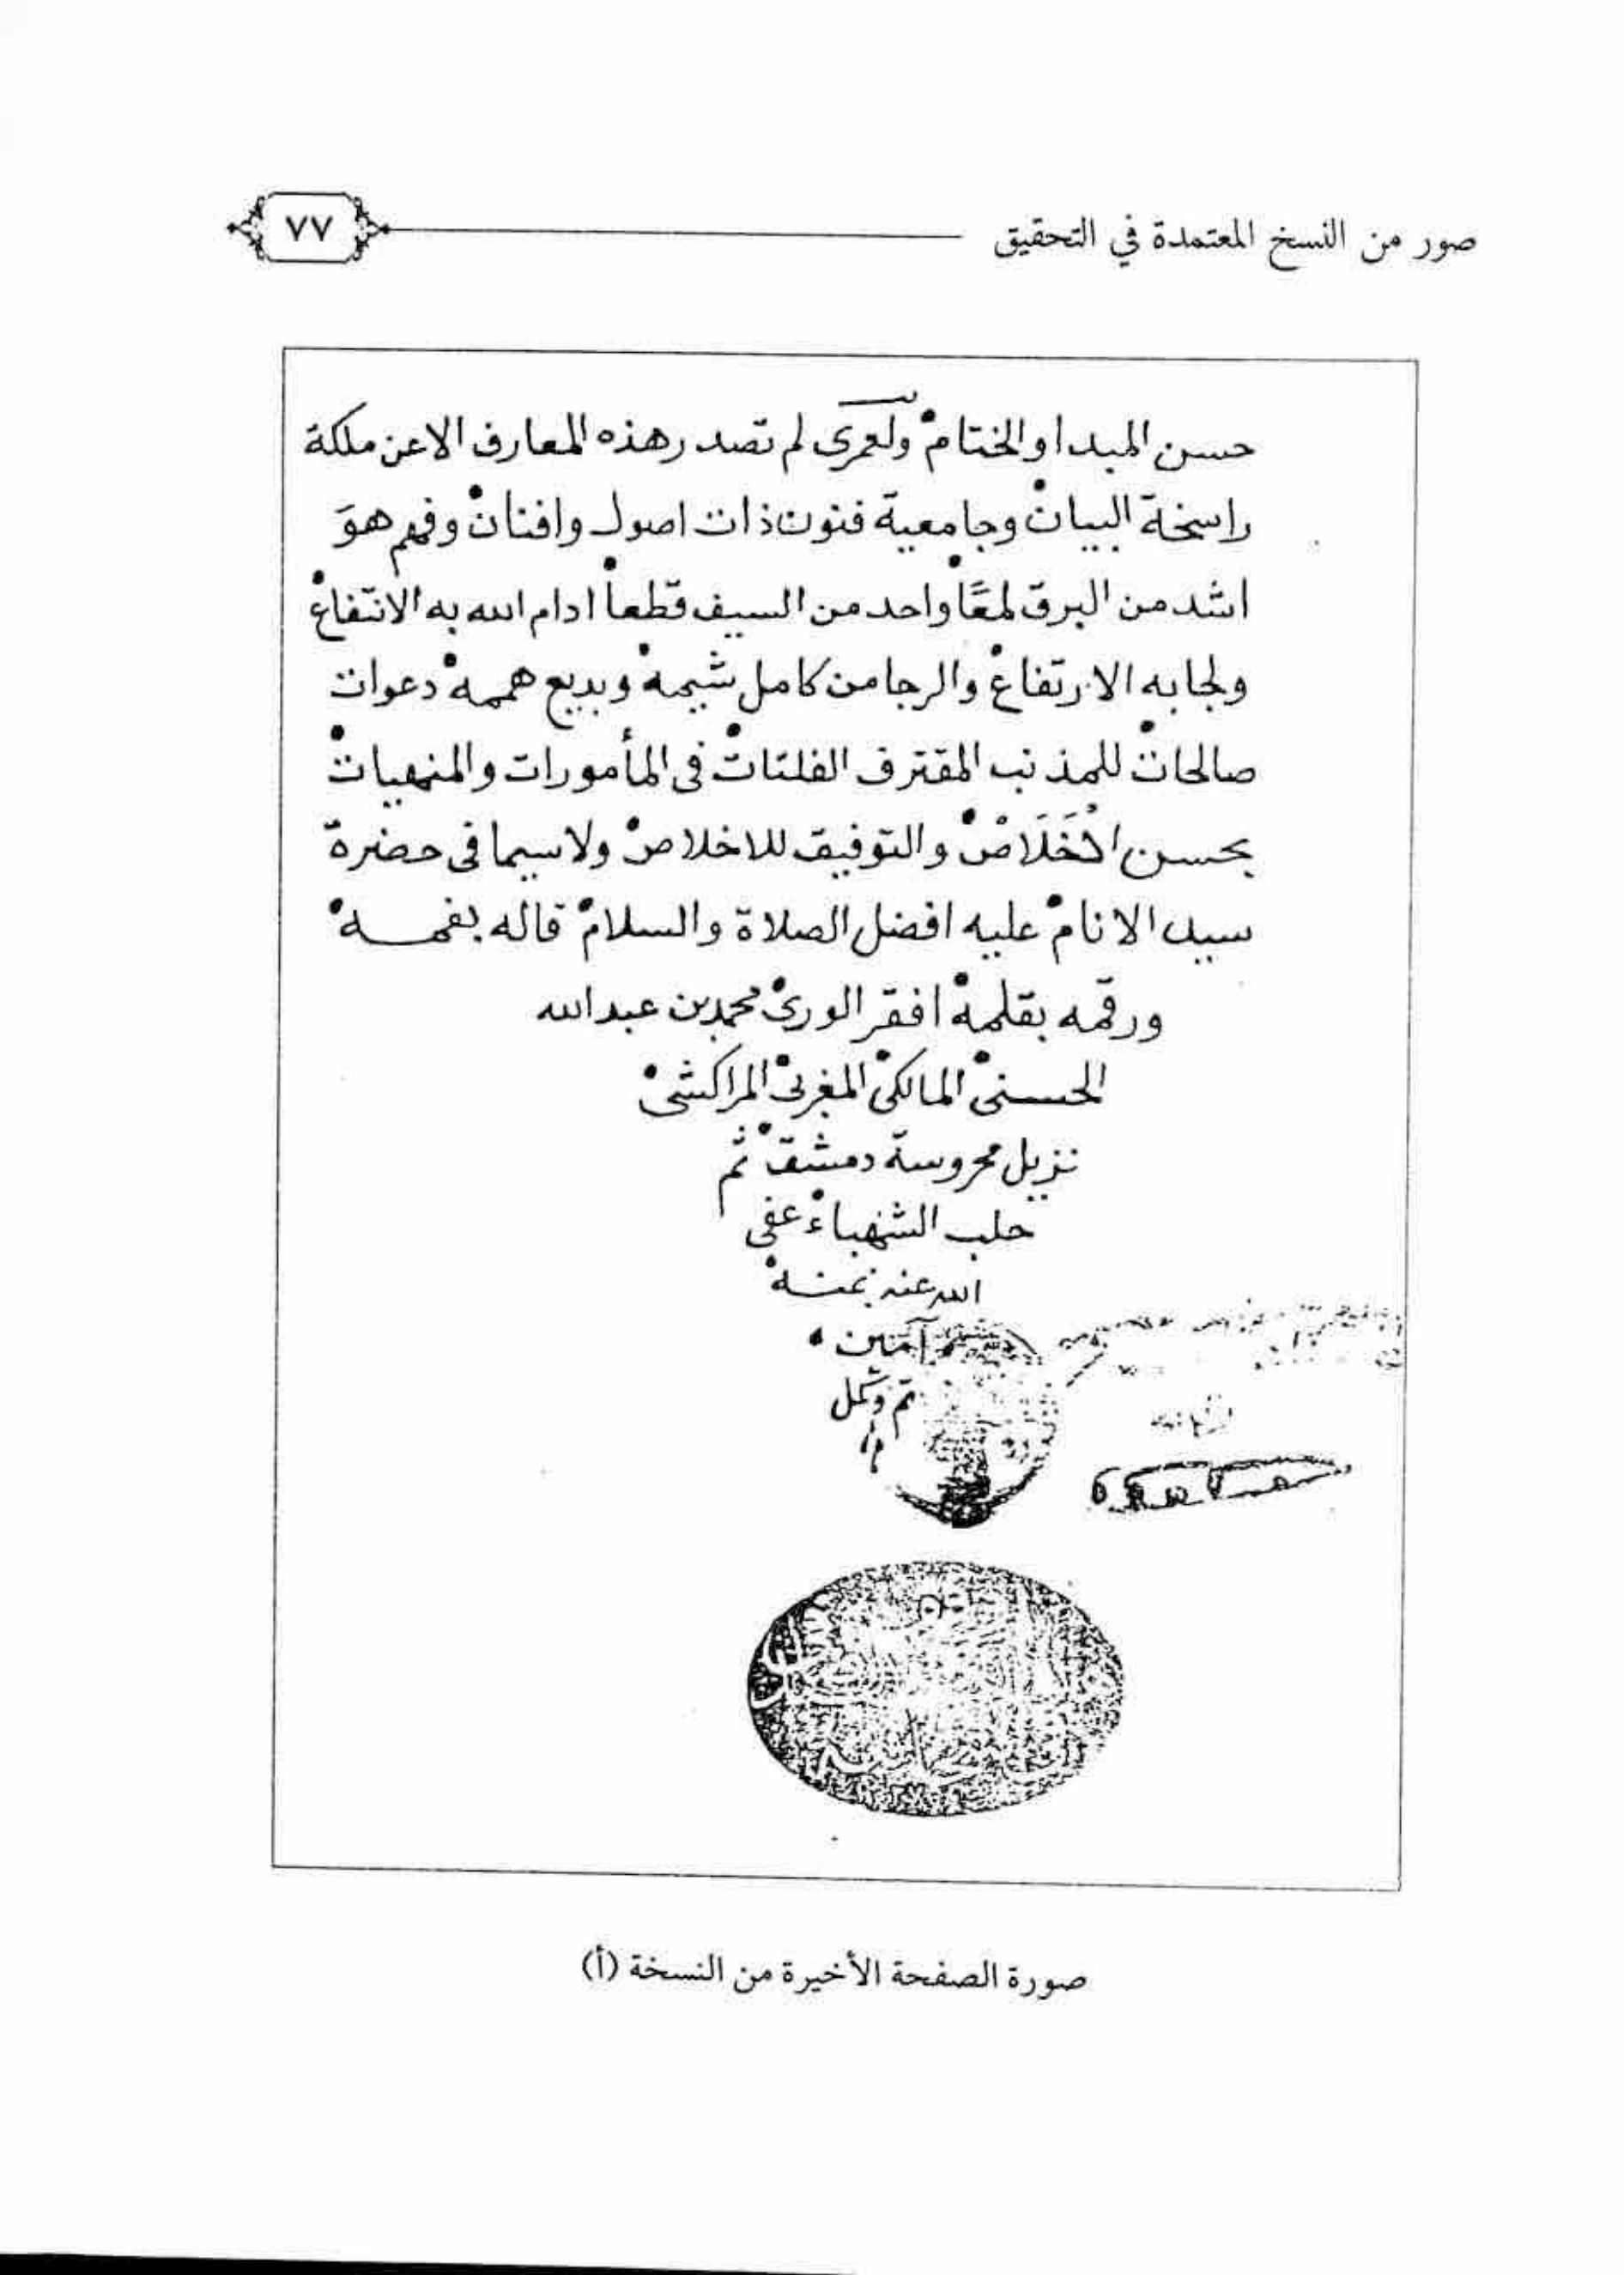 صور من النسخ المعتمدة في التحقيق
٧٧
حسن المبدا والختام ولعمرى لم تصدر هذه المعارف الا عن ملكة
راسخة البيان وجامعية فنون ذات اصول وافنان وفهم هوَ
اشد من البرق لمعًا واحد من السيف قطعا ادام الله به الانتفاع
ولجابه الارتفاع والرجا من كامل شيمه وبديع هممه دعوات
صالحات للمذنب المقترف الفلتات فى المأمورات والمنهيات
بحسن الخَلَاص والتوفيق للاخلاص ولاسيما فى حضرة
سيد الانام عليه افضل الصلاة والسلام قاله بفمه
ورقمه بقلمه افقر الورى محمد بن عبد الله
الحسنى المالكى المغربى المراكشى
نزيل محروسة دمشق ثم
حلب الشهباء عفى
الله عنه بمنه
آمين
تم وكمل
م
صورة الصفحة الأخيرة من النسخة (أ)